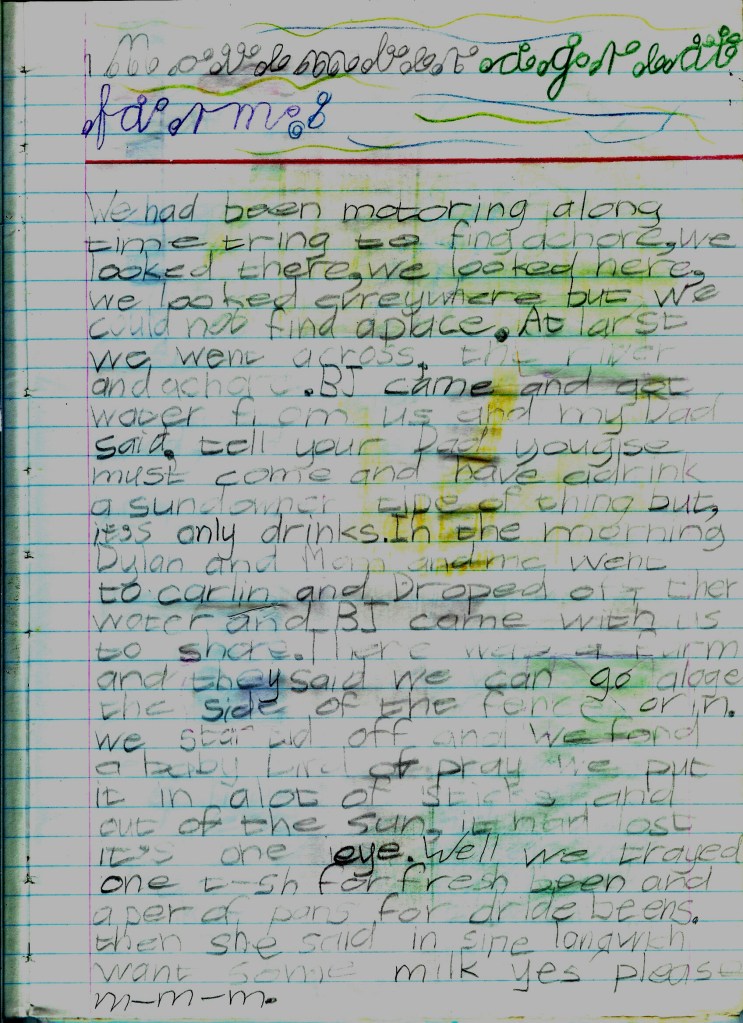 November a great
farms
We had been motoring along
time tring to fing achore, we
looked there, we looked here,
we looked evreywhere but we
could not find aplace. At larst
we went across the river
and achor. BJ came and got
water from us and my Dad
said. tell your Dad yougise
must come and have adrink
a sundowner tipe of thing but,
it,s only drinks. In the morning
Dylan and Mom and me went
to carlin and Droped of ther
water and BJ came with us
to shore. There was a farm
and they said we can go aloge
the side of the fence or in.
we started off and we fond
a baby bird of pray we put
it in alot of sticks and
out of the sun, it had lost
it's one eye. Well we trayed
one t-sh for fresh been and
aper of pans for dride beens.
then she said in sine langwich
want some milk yes please
m-m-m.